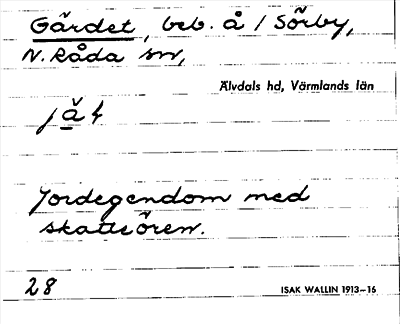 Gärdet, beb. å 1 Sörby,
N. Råda sn,
Älvdals hd, Värmlands län
Jordegendom med
skatteören.
28
ISAK WALLIN 1913–16